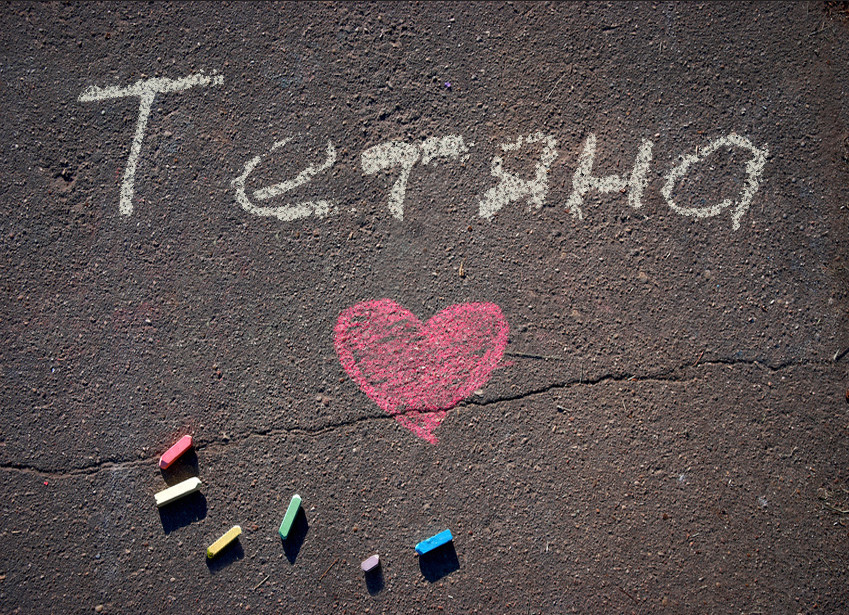 Тетяна